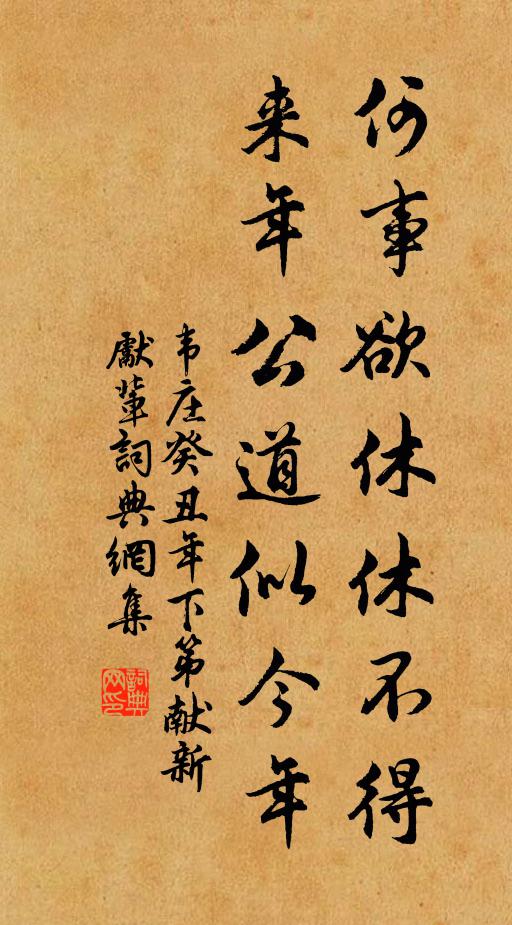 何事欲休休不得
来年公道似今年
韦庄癸丑年下第献新
獻輩詞典網集
詞典网印